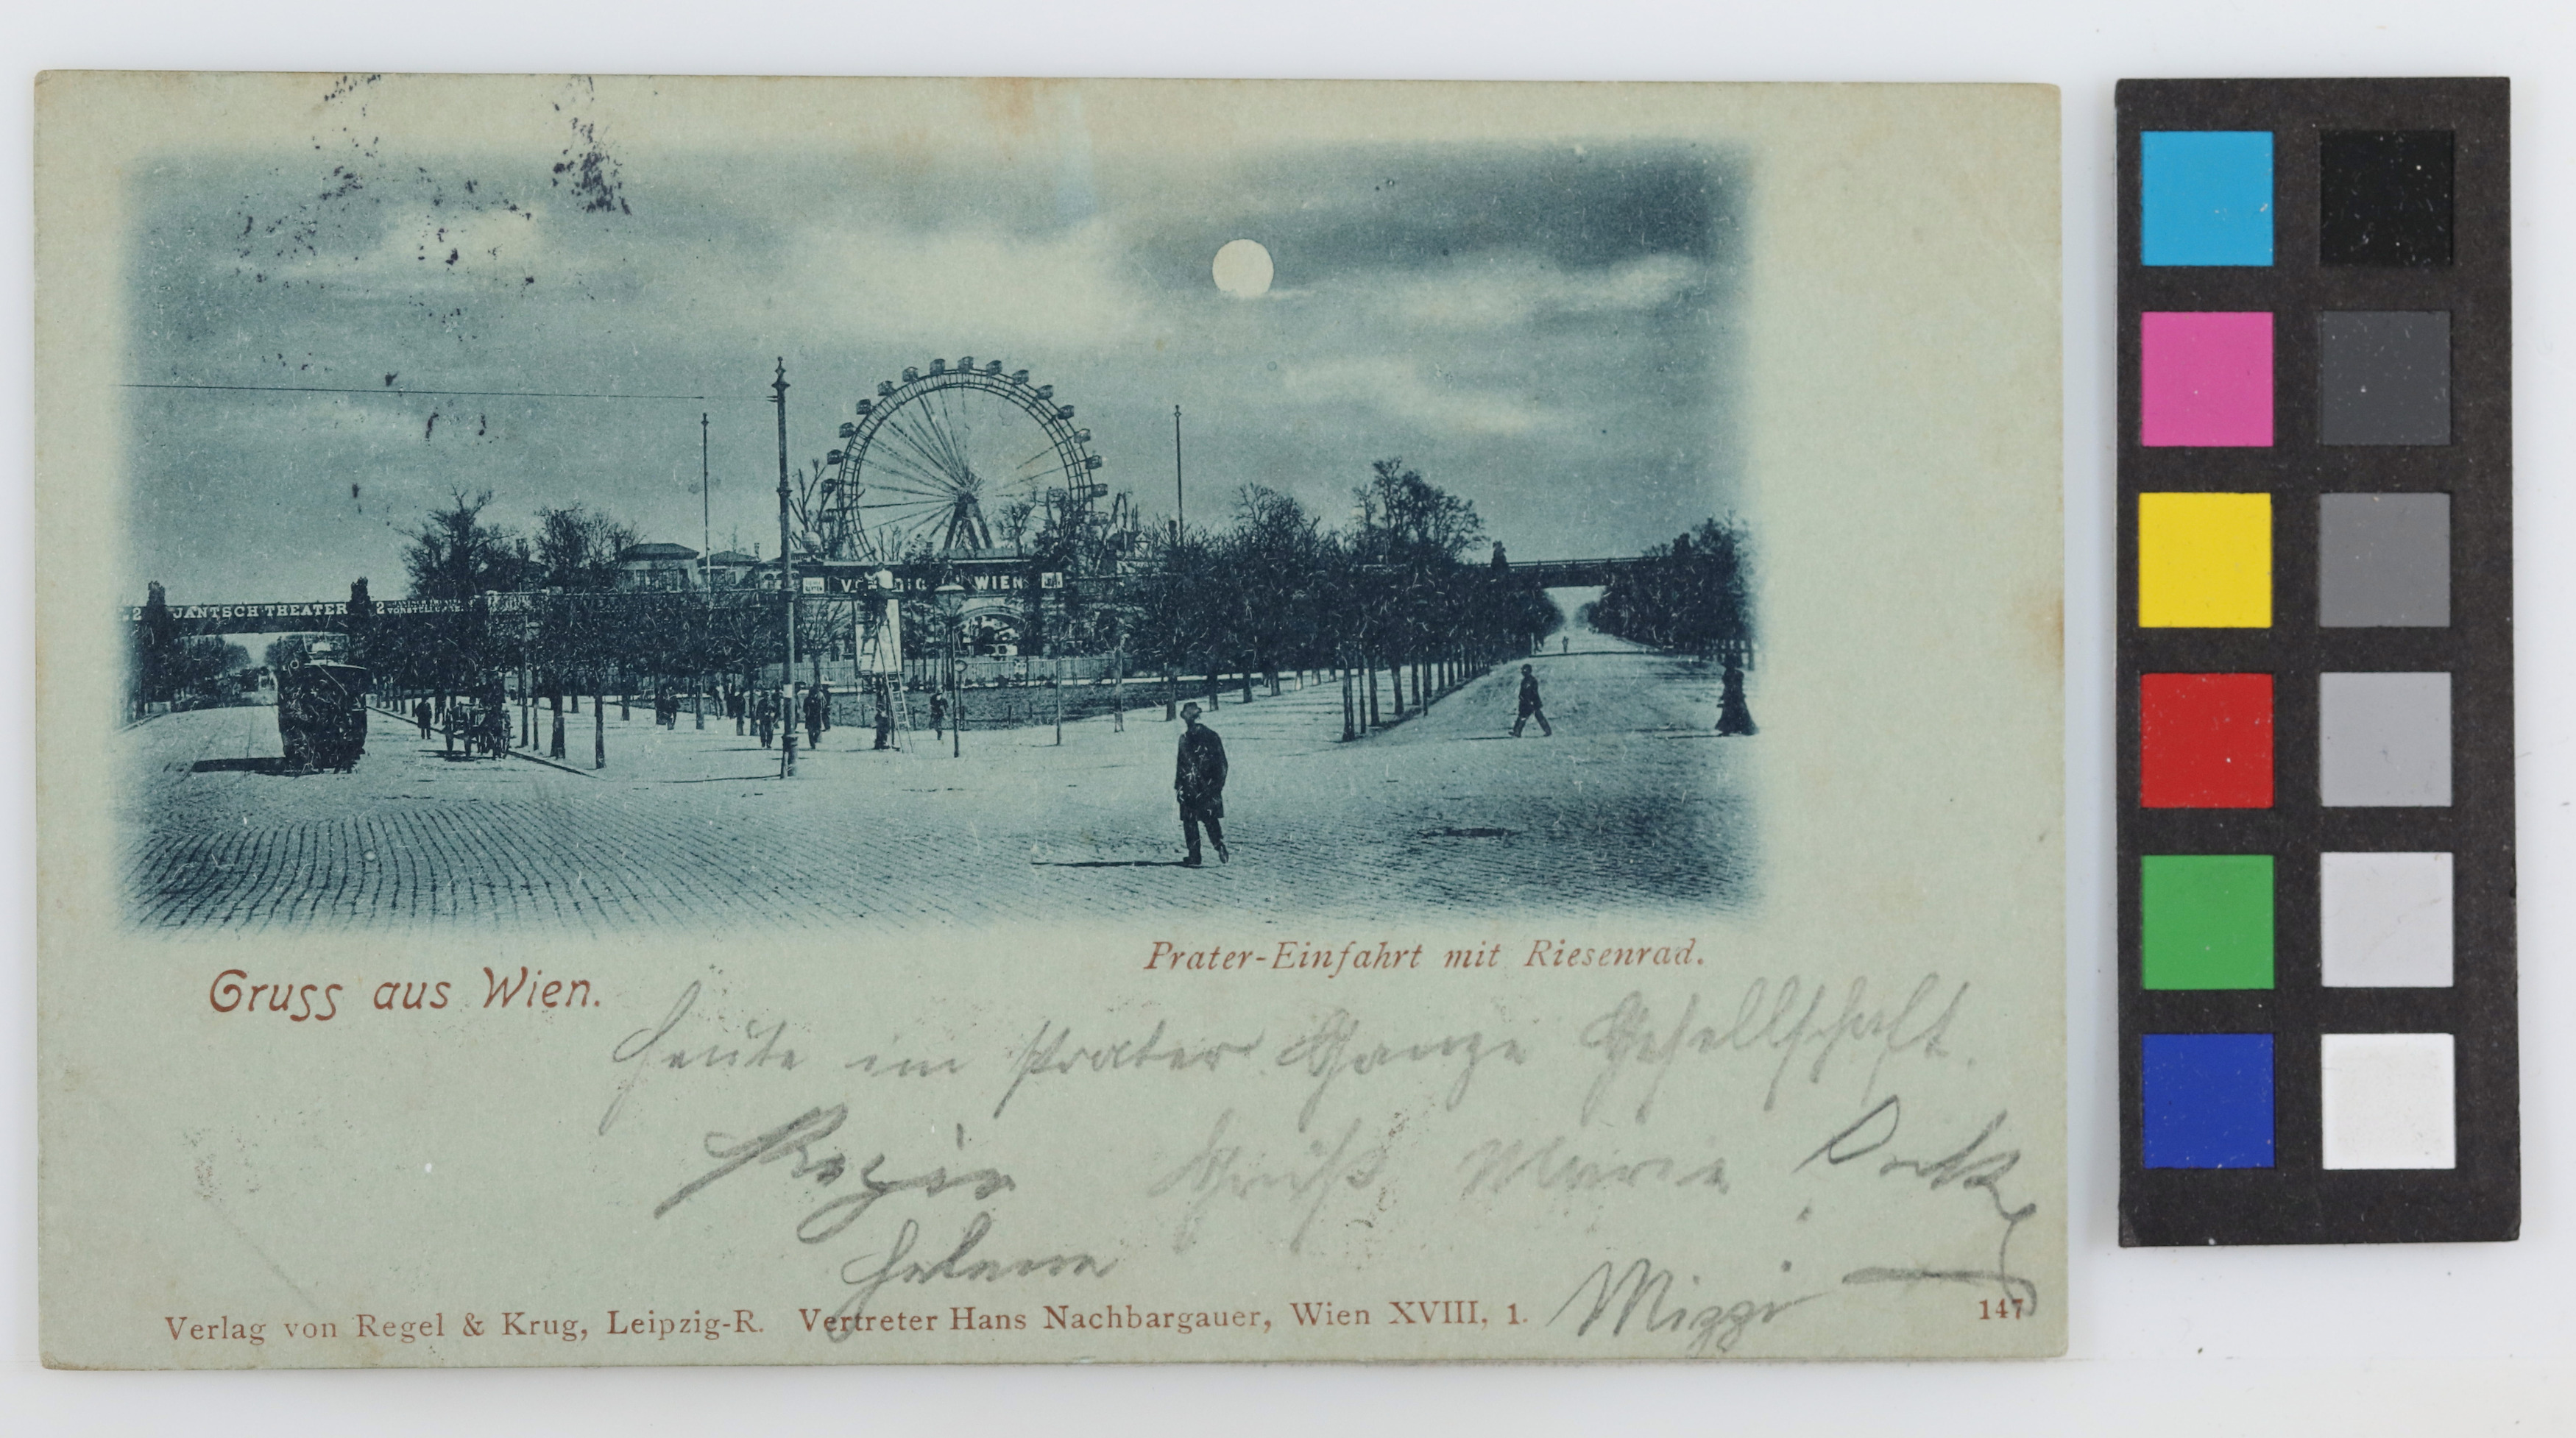 JANTSCH THEATER
WIEN
Prater-Einfahrt mit Riesenrad.
Gruss aus Wien.
Heute im Prater Ganze Gesellschaft.
Gruß Marie
Helene
Mizzi
Verlag von Regel & Krug, Leipzig-R. Vertreter Hans Nachbargauer, Wien XVIII, 1.
147